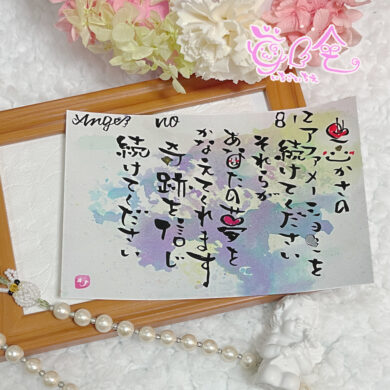 Angel no 8
豊かさの
アファメーションを
続けてください
それらが
あなたの夢を
かなえてくれます
奇跡を信じ
続けてください